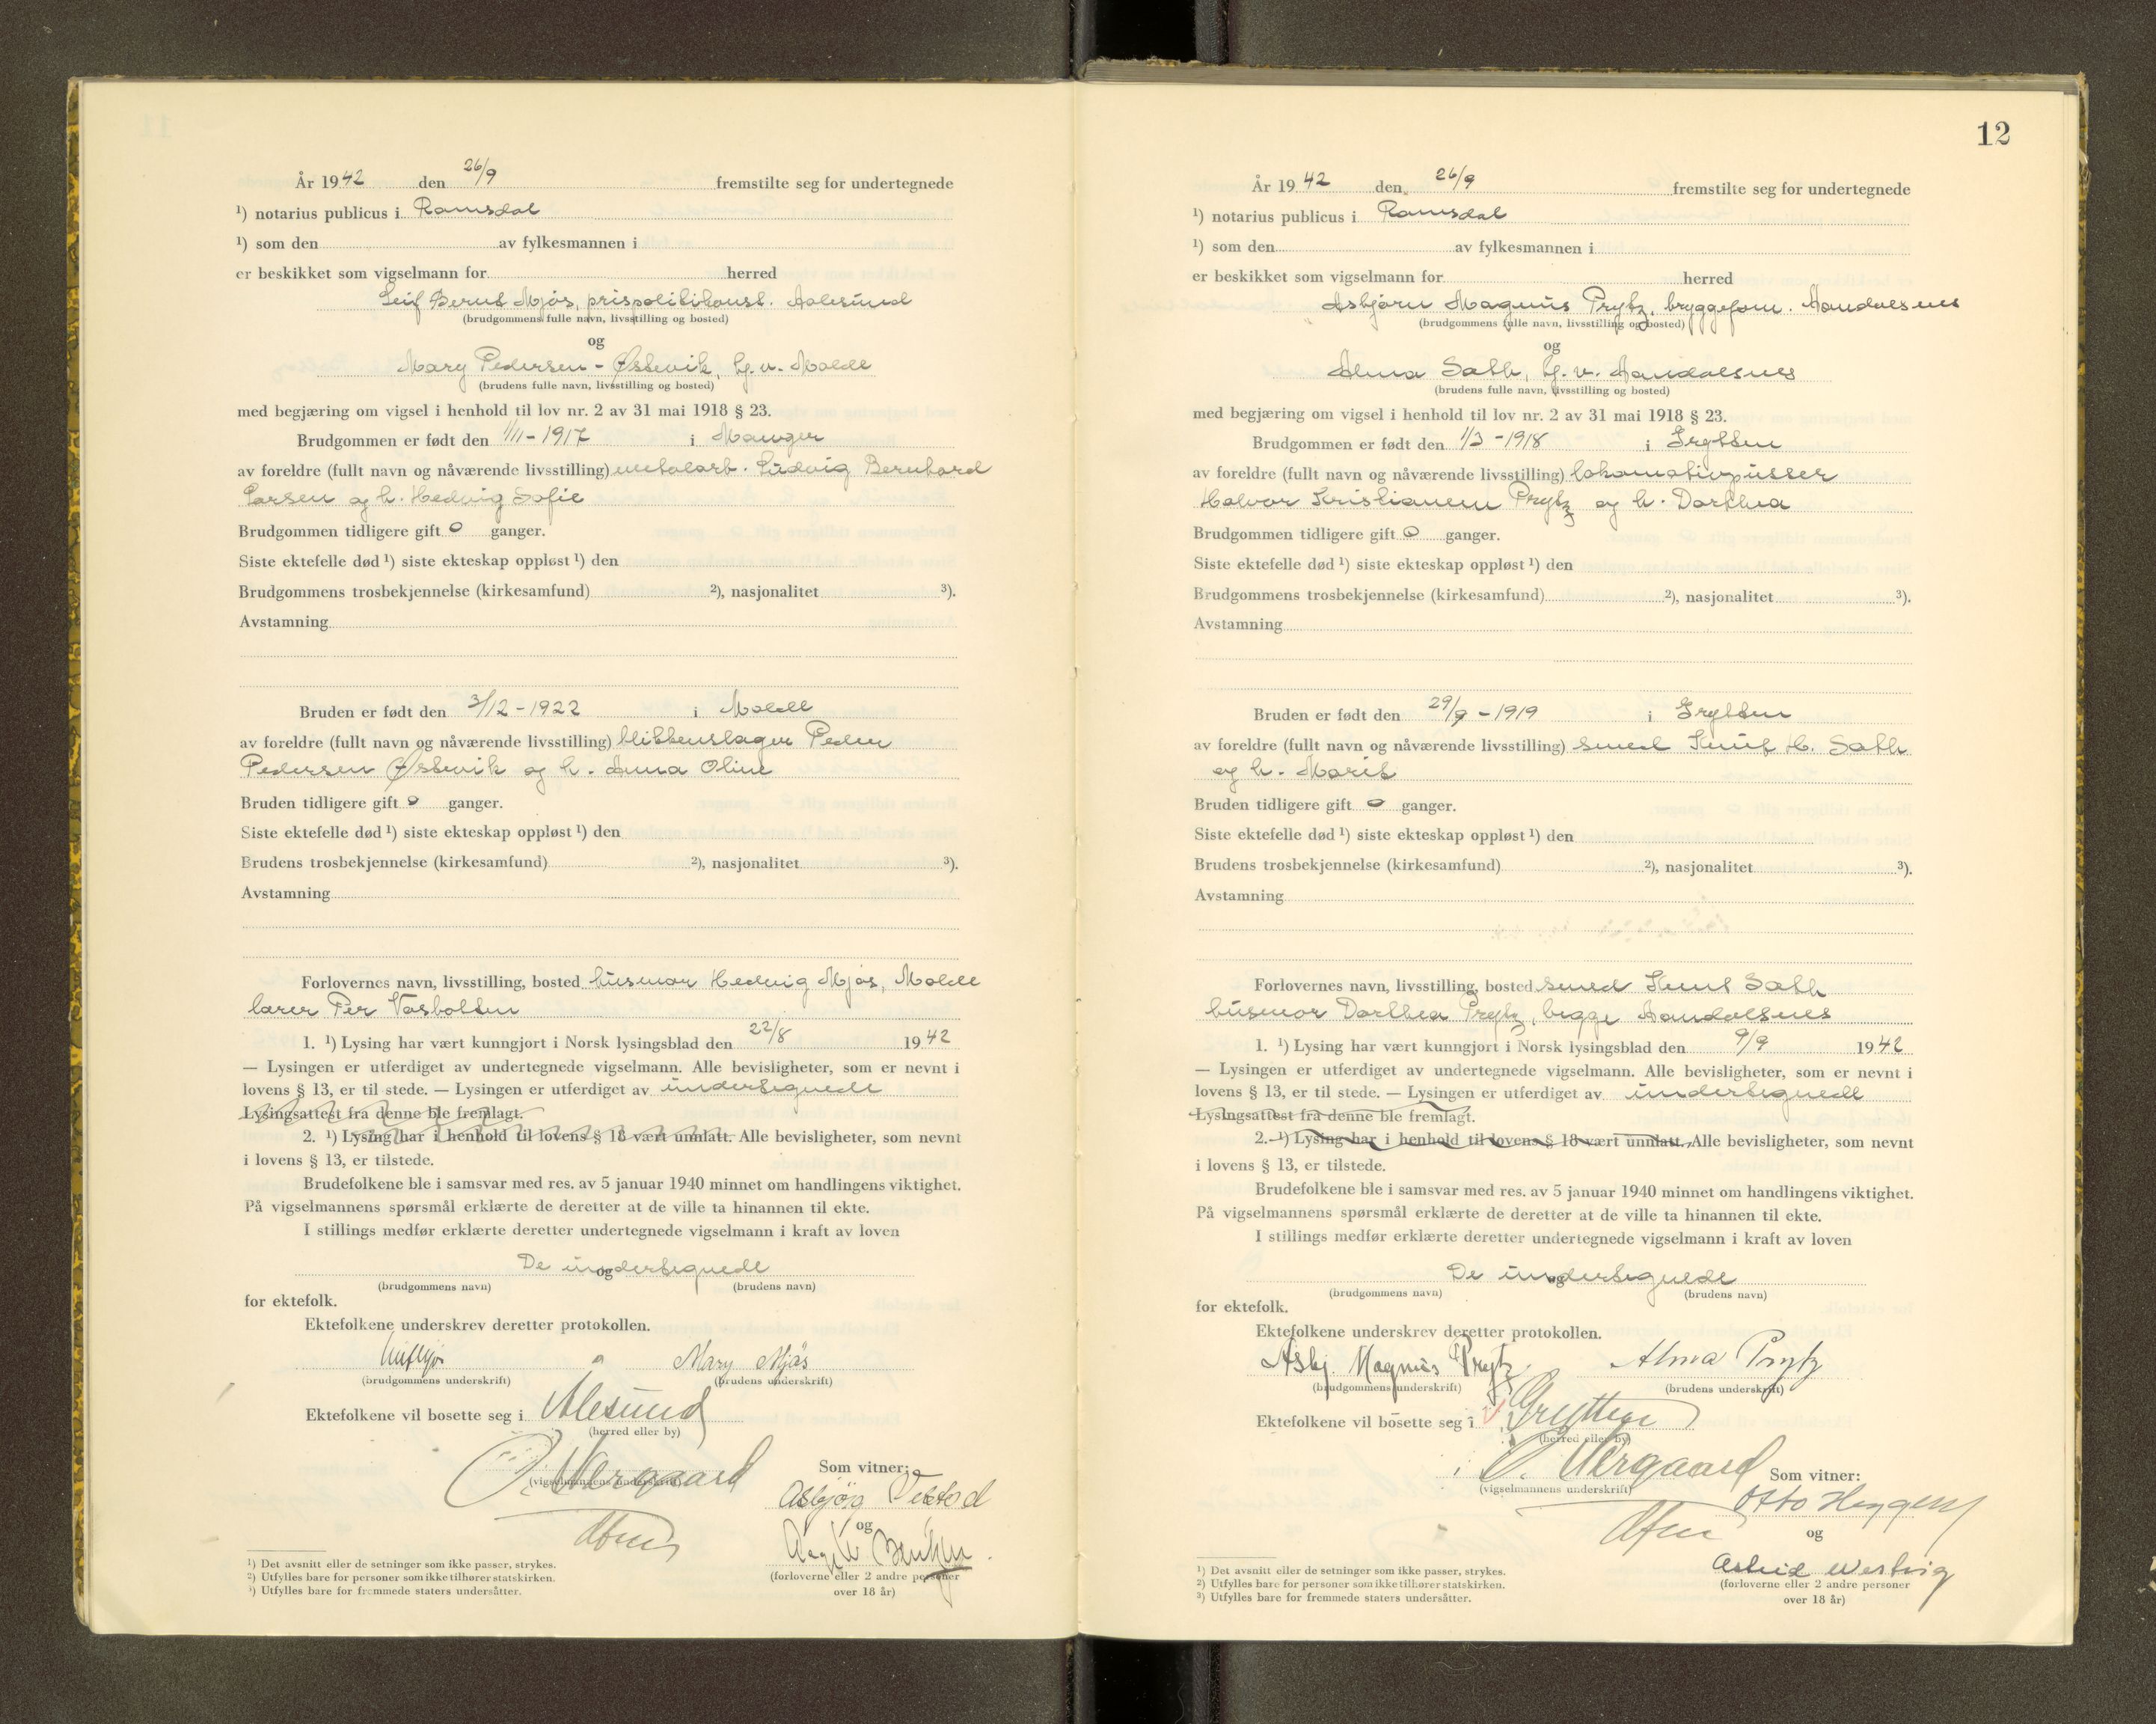 År 1942 den 26/9 fremstilte seg for undertegnede
¹) notarius publicus i Romsdal
¹) som den av fylkesmannen i
er beskikket som vigselmann for herred
Leif Bernt Mjøs, prispolitikonst. Aalesund
(brudgommens fulle navn, livsstilling og bosted)
og
Mary Pedersen - Østevik, hj.v. Molde
(brudens fulle navn, livsstilling og bosted)
med begjæring om vigsel i henhold til lov nr. 2 av 31 mai 1918 § 23.
Brudgommen er født den 1/11-1917 i Manger
av foreldre (fullt navn og nåværende livsstilling) metalarb. Ludvig Bernhard
Larsen og h. Hedvig Sofie
Brudgommen tidligere gift 0 ganger.
Siste ektefelle død ¹) siste ekteskap oppløst ¹) den
Brudgommens trosbekjennelse (kirkesamfund) ²), nasjonalitet ³).
Avstamning
Bruden er født den 3/12-1922 i Molde
av foreldre (fullt navn og nåværende livsstilling) blikkenslager Peder
Pedersen Østevik og h. Anna Oline
Bruden tidligere gift 0 ganger.
Siste ektefelle død ¹) siste ekteskap oppløst ¹) den
Brudens trosbekjennelse (kirkesamfund) ²), nasjonalitet ³).
Avstamning
Forlovernes navn, livsstilling, bosted husmor Hedvig Mjøs, Molde
lærer Per
1. ¹) Lysing har vært kunngjort i Norsk lysingsblad den 22/8 1942
— Lysingen er utferdiget av undertegnede vigselmann. Alle bevisligheter, som er nevnt i
lovens § 13, er til stede. — Lysingen er utferdiget av undertegnede
Lysingsattest fra denne ble fremlagt.
2. ¹) Lysing har i henhold til lovens § 18 vært unnlatt. Alle bevisligheter, som nevnt
i lovens § 13, er tilstede.
Brudefolkene ble i samsvar med res. av 5 januar 1940 minnet om handlingens viktighet.
På vigselmannens spørsmål erklærte de deretter at de ville ta hinannen til ekte.
I stillings medfør erklærte deretter undertegnede vigselmann i kraft av loven
De undertegnede
og
(brudgommens navn) (brudens navn)
for ektefolk.
Ektefolkene underskrev deretter protokollen.
Mary Mjøs
(brudgommens underskrift) (brudens underskrift)
Ektefolkene vil bosette seg i Ålesund
(herred eller by)
Som vitner:
(vigselmannens underskrift)
og
(forloverne eller 2 andre personer
over 18 år)
¹) Det avsnitt eller de setninger som ikke passer, strykes.
²) Utfylles bare for personer som ikke tilhører statskirken.
³) Utfylles bare for fremmede staters undersåtter.
12
År 1942 den 26/9 fremstilte seg for undertegnede
¹) notarius publicus i Romsdal
¹) som den av fylkesmannen i
er beskikket som vigselmann for herred
Asbjørn Magnus Prytz, bryggeform. Aandalsnes
(brudgommens fulle navn, livsstilling og bosted)
og
Alma Sæth, hj.v. Aandalsnes
(brudens fulle navn, livsstilling og bosted)
med begjæring om vigsel i henhold til lov nr. 2 av 31 mai 1918 § 23.
Brudgommen er født den 1/3-1918 i Grytten
av foreldre (fullt navn og nåværende livsstilling) lokomotivpusser
Halvor Kristiansen Prytz og h. Dorthea
Brudgommen tidligere gift 0 ganger.
Siste ektefelle død ¹) siste ekteskap oppløst ¹) den
Brudgommens trosbekjennelse (kirkesamfund) ²), nasjonalitet ³).
Avstamning
Bruden er født den 29/9-1919 i Grytten
av foreldre (fullt navn og nåværende livsstilling) smed Knut H. Sæth
og h. Marit
Bruden tidligere gift 0 ganger.
Siste ektefelle død ¹) siste ekteskap oppløst ¹) den
Brudens trosbekjennelse (kirkesamfund) ²), nasjonalitet ³).
Avstamning
Forlovernes navn, livsstilling, bosted smed Knut Sæth
husmor Dorthea Prytz, begge Aandalsnes
1. ¹) Lysing har vært kunngjort i Norsk lysingsblad den 9/9 1942
— Lysingen er utferdiget av undertegnede vigselmann. Alle bevisligheter, som er nevnt i
lovens § 13, er til stede. — Lysingen er utferdiget av undertegnede
Lysingsattest fra denne ble fremlagt.
2. ¹) Lysing har i henhold til lovens § 18 vært unnlatt. Alle bevisligheter, som nevnt
i lovens § 13, er tilstede.
Brudefolkene ble i samsvar med res. av 5 januar 1940 minnet om handlingens viktighet.
På vigselmannens spørsmål erklærte de deretter at de ville ta hinannen til ekte.
I stillings medfør erklærte deretter undertegnede vigselmann i kraft av loven
De undertegnede
og
(brudgommens navn) (brudens navn)
for ektefolk.
Ektefolkene underskrev deretter protokollen.
Asbj. Magnus Prytz Alma Prytz
(brudgommens underskrift) (brudens underskrift)
Ektefolkene vil bosette seg i Grytten
(herred eller by)
Som vitner:
(vigselmannens underskrift)
Otto
og
Astrid
(forloverne eller 2 andre personer
over 18 år)
¹) Det avsnitt eller de setninger som ikke passer, strykes.
²) Utfylles bare for personer som ikke tilhører statskirken.
³) Utfylles bare for fremmede staters undersåtter.